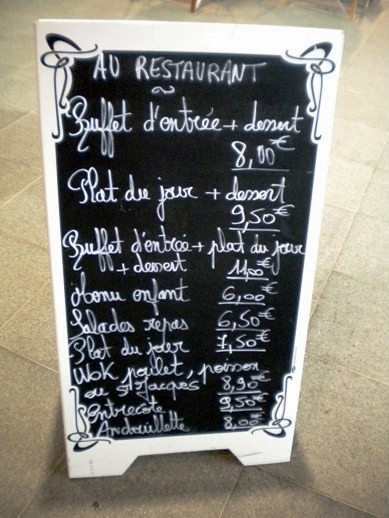 AU RESTAURANT
Buffet d'entrée + dessert
8,00€
Plat du jour + dessert
9,50€
Buffet d'entrée + plat du jour
+ dessert 11,00€
Menu enfant 6,00€
Salades repas 6,50€
Plat du jour 7,50€
Wok poulet, poisson
ou St Jacques 8,90€
Entrecote 9,50€
Andouillette 8,00€